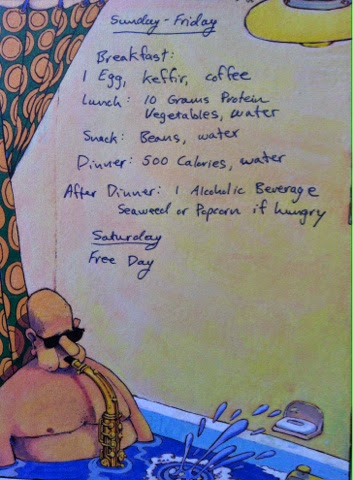 Sunday - Friday
Breakfast:
1 Egg, keffir, coffee
Lunch: 10 Grams Protein
Vegetables, water
Snack: Beans, water
Dinner: 500 Calories, water
After Dinner: 1 Alcoholic Beverage
Seaweed or Popcorn if hungry
Saturday
Free Day